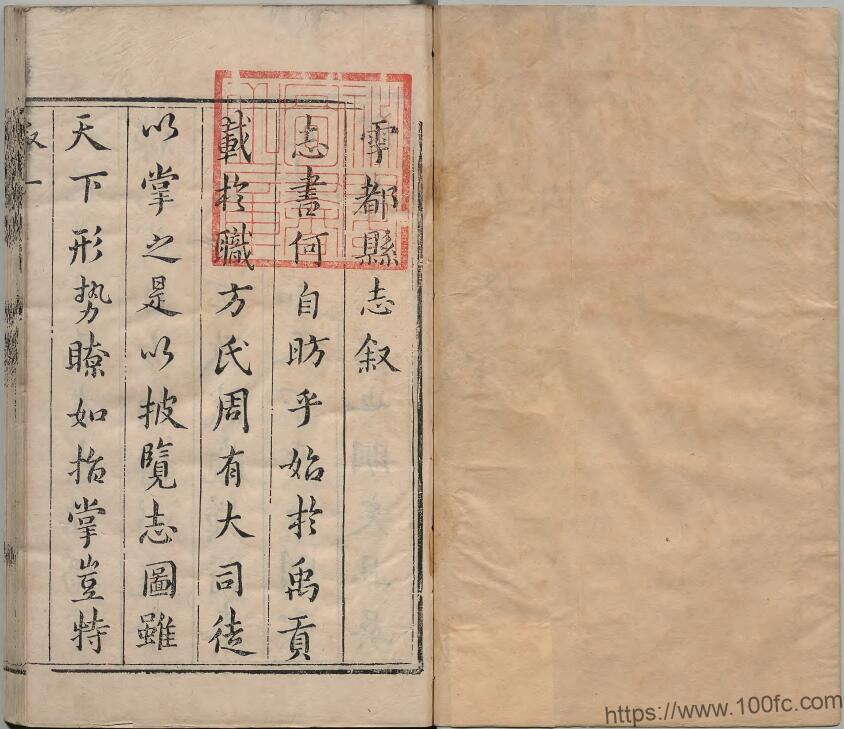 雩都縣志叙
志書何自昉乎始於禹貢
載於職方氏周有大司徒
以掌之是以披覽志圖雖
天下形势瞭如指掌豈特
https://www.100fc.com